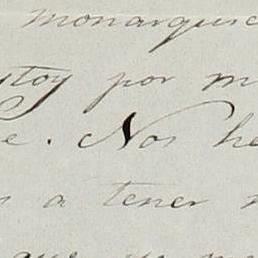 monarquic
stoy por m
e. Nos he
s a tener
que